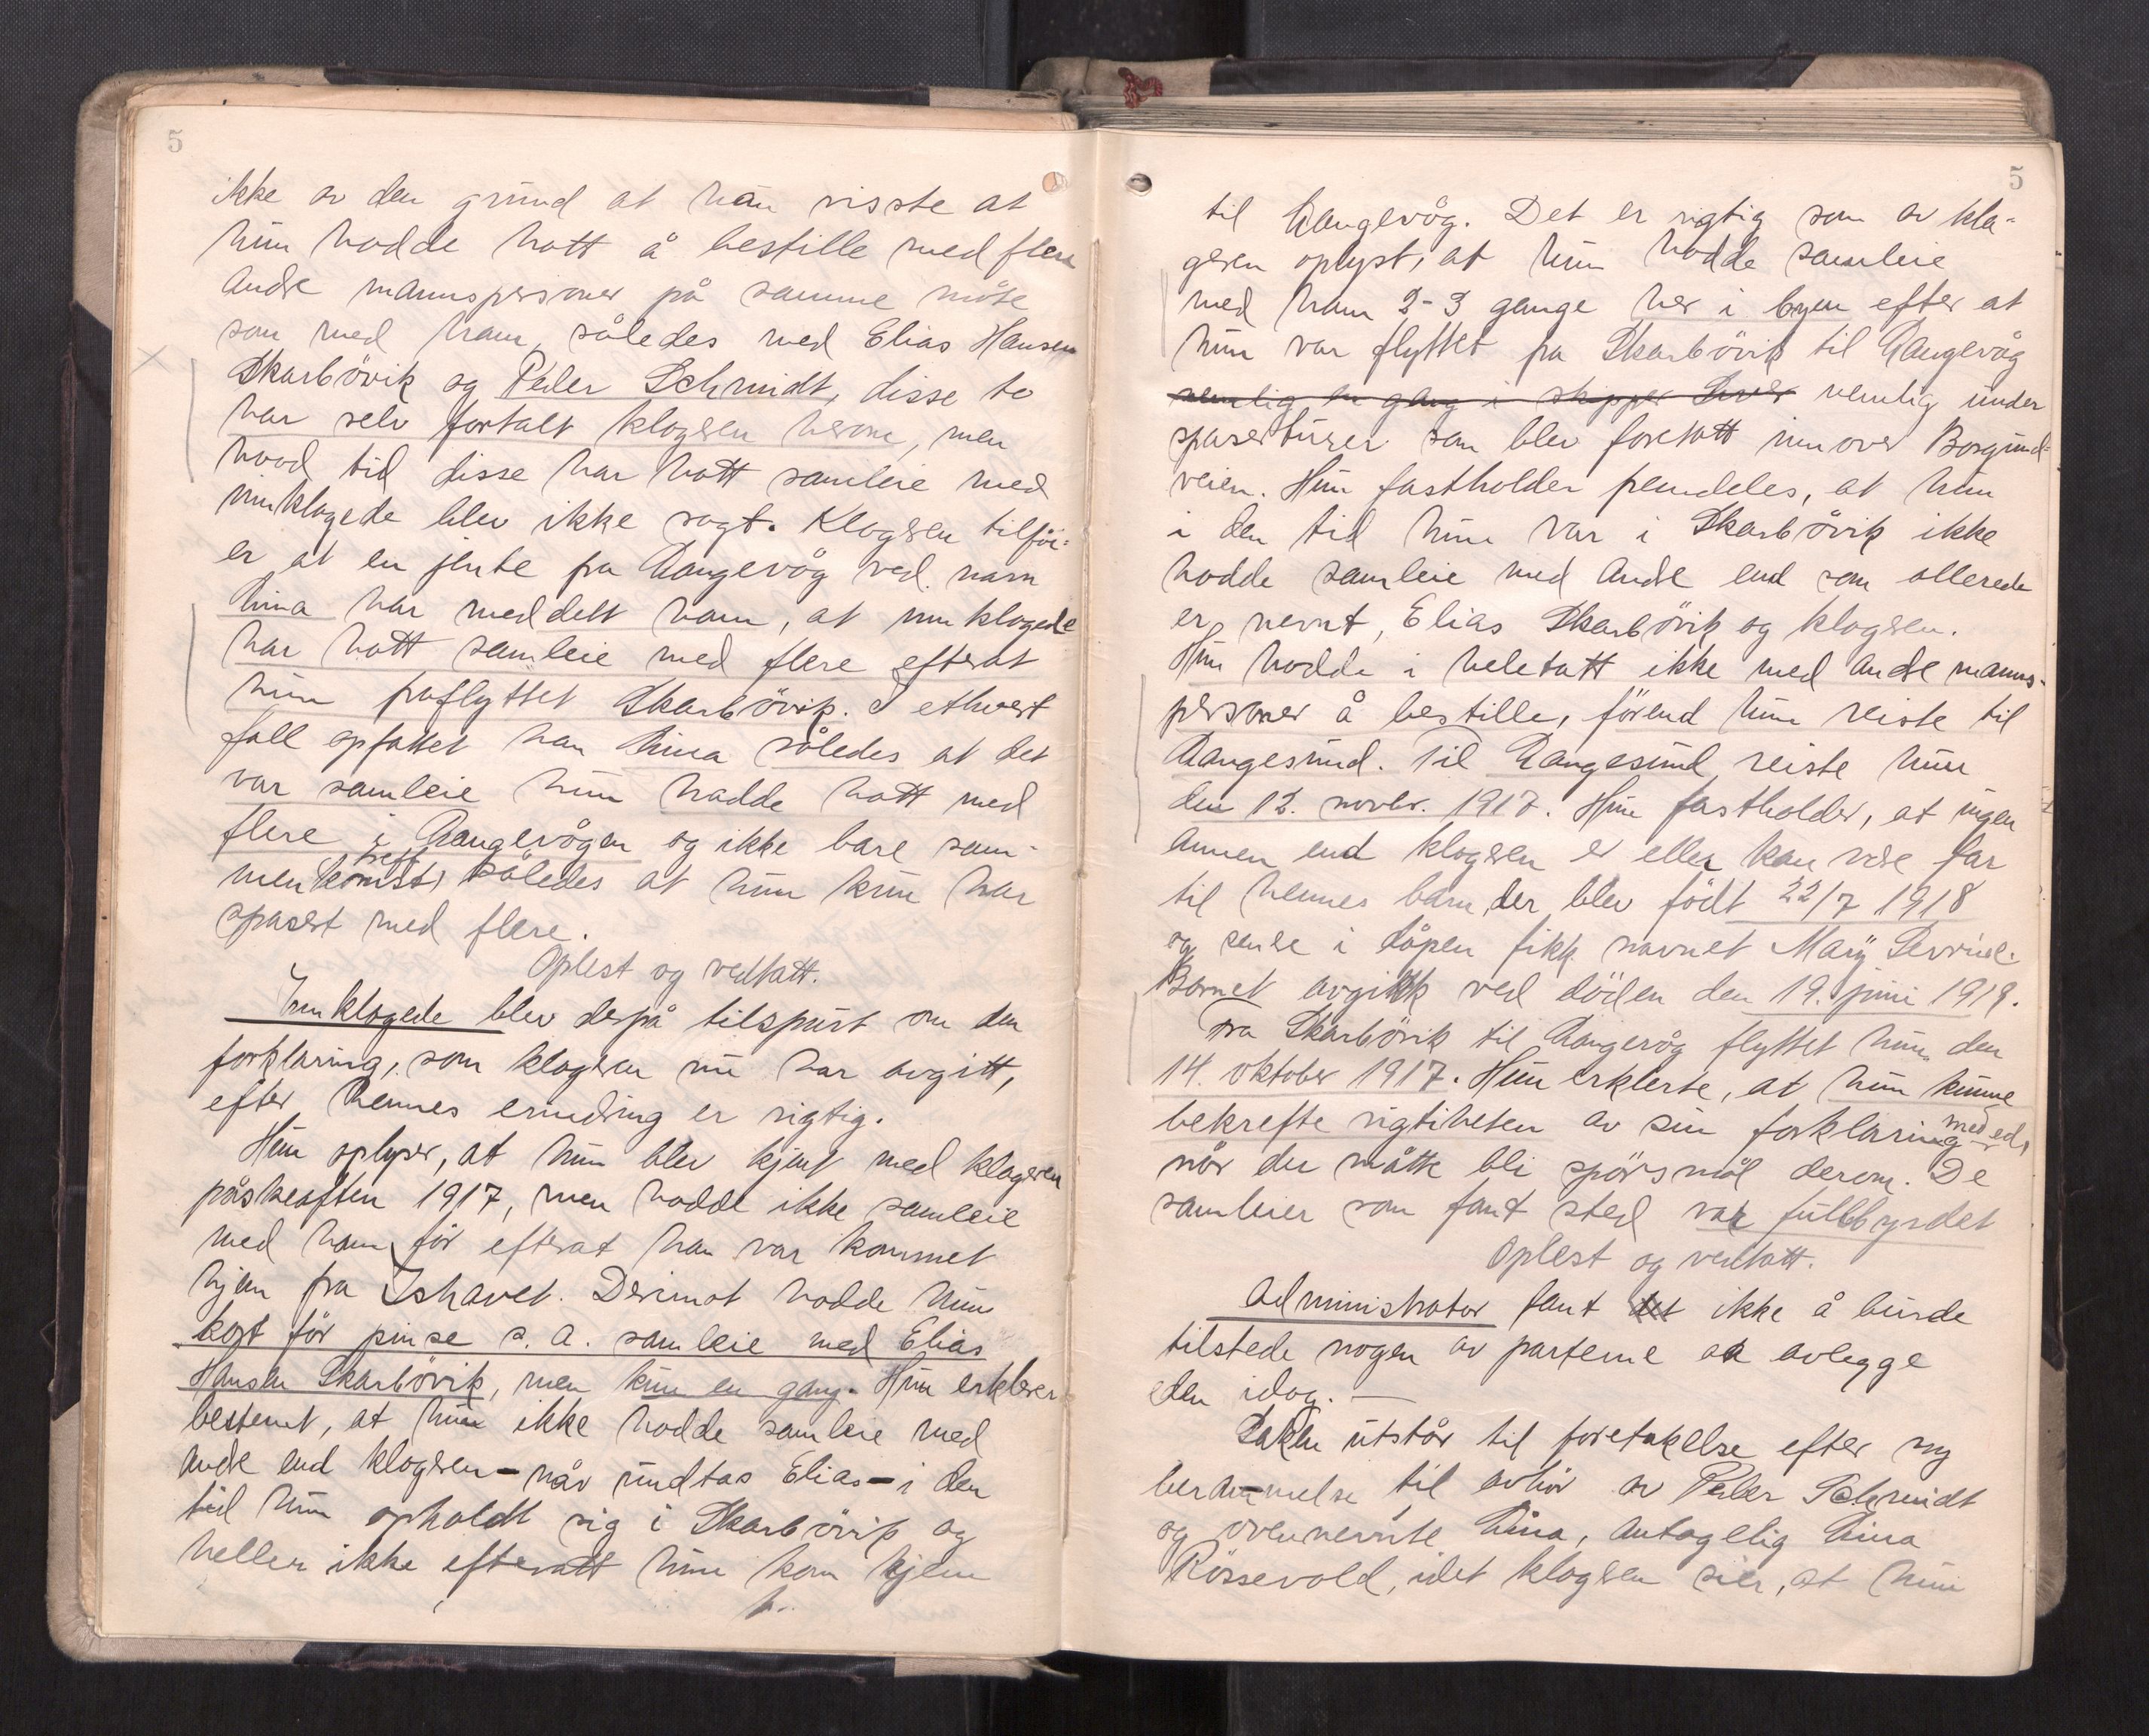 5
ikke av den grund at han visste at
hun hadde hatt å bestille med flere
andre mannspersoner på samme måte
som med ham, således med Elias Hansen
Skarbövik og Peder Schmidt, disse to
har selv fortalt klageren herom, men
hvad tid disse har hatt samleie med
innklagede blev ikke sagt. Klageren tilföi-
er at en jente fra Aangevåg ved navn
Lina har meddelt ham, at innklagede
har hatt samleie med flere efterat
hun fraflyttet Skarbövik. I ethvert
fall opfattet han Lina således at det
var samleie hun hadde hatt med
flere i Aangevågen og ikke bare sam-
mentreff således at hun kun har
spasert med flere.
Oplest og vedtatt.
Innklagede blev derpå tilspurt om den
forklaring, som klageren nu har avgitt,
efter hennes erindring er rigtig.
Hun oplyser, at hun blev kjent med klageren
påskeaften 1917, men hadde ikke samleie
med ham för efterat han var kommet
hjem fra Ishavet. Derimot hadde hun
kort för pinse s. a. samleie med Elias
Hansen Skarbövik, men kun en gang. Hun erklærer
bestemt, at hun ikke hadde samleie med
andre end klageren - når undtas Elias - i den
tid hun opholdt sig i Skarbövik og
heller ikke efteratt hun kom hjem
5
til Aangevåg. Det er rigtig som av kla-
geren oplyst, at hun hadde samleie
med ham 2-3 gange her i byen efter at
hun var flyttet fra Skarbövik til Aangevåg
nemlig en gang i skipper nemlig under
spaserturer som blev foretatt innover Borgund-
veien. Hun fastholder fremdeles, at hun
i den tid hun var i Skarbövik ikke
hadde samleie med andre end som allerede
er nevnt, Elias Skarbövik og klageren.
Hun hadde i heletatt ikke med andre manns-
personer å bestille, förend hun reiste til
Aangesund. Til Aangesund reiste hun
den 12. novbr. 1917. Hun fastholder, at ingen
annen end klageren er eller kan være far
til hennes barn, der blev födt 22/7 1918
og senere i dåpen fikk navnet Mary Severine.
Barnet avgikk ved döden den 19. juni 1919.
Fra Skarbövik til Aangevåg flyttet hun den
14. oktober 1917. Hun erklerte, at hun kunne
bekrefte rigtiheten av sin forklaring med ed,
når der måtte bli spörsmål derom. De
samleier som fant sted var fullbyrdet
Oplest og vedtatt.
Administrator fant det ikke å burde
tilstede nogen av parterne aa avlegge
eden idag. —
Saken utstår til foretakelse efter ny
berammelse til avhör av Peder Schmidt
og ovennevnte Lina, antagelig Lina
Rössevold, idet klageren sier, at hun